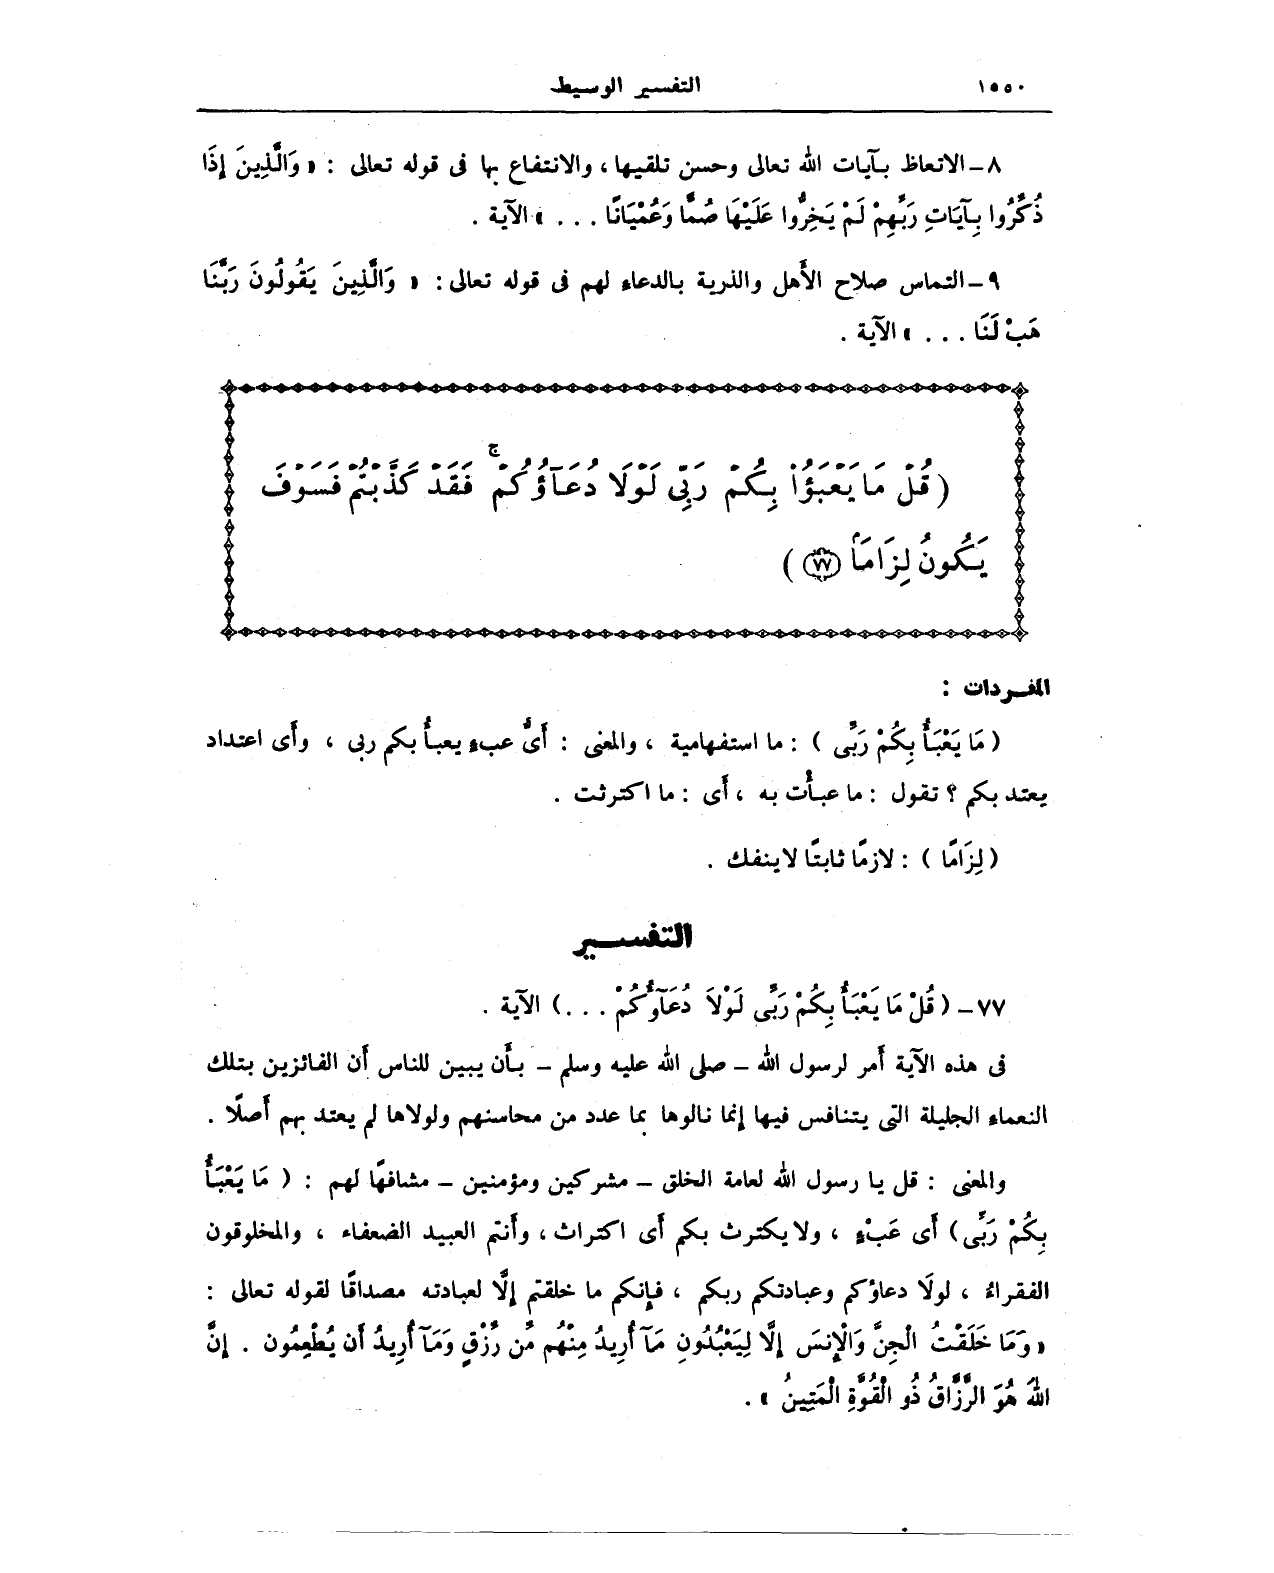 ١٥٥٠
التفسير الوسيط
٨ـ الاتعاظ بآيات الله تعالى وحسن تلقيها ، والانتفاع بها فى قوله تعالى : « وَالَّذِينَ إِذَا
ذُكِّرُوا بِآيَاتِ رَبِّهِمْ لَمْ يَخِرُّوا عَلَيْهَا صُمًّا وَعُمْيَانًا . . . » الآية .
٩ـ التماس صلاح الأَهل والذرية بالدعاء لهم فى قوله تعالى : « وَالَّذِينَ يَقُولُونَ رَبَّنَا
هَبْ لَنَا . . . » الآية .
( قُلْ مَا يَعْبَؤُاْ بِكُمْ رَبِّى لَوْلَا دُعَآؤُكُمْ ۚ فَقَدْ كَذَّبْتُمْ فَسَوْفَ
يَكُونُ لِزَامَۢا ٧٧ )
المفـردات :
( مَا يَعْبَأُ بِكُمْ رَبِّى ) : ما استفهامية ، والمعنى : أَىُّ عبء يعبأُ بكم ربى ، وأَى اعتداد
يعتد بكم ؟ تقول : ما عبأْت به ، أَى : ما اكترثت .
( لِزَامًا ) : لازمًا ثابتًا لاينفك .
التفســـير
٧٧ ـ ( قُلْ مَا يَعْبَأُ بِكُمْ رَبِّى لَوْلَا دُعَآؤُكُمْ . . . ) الآية .
فى هذه الآية أَمر لرسول الله ـ صلى الله عليه وسلم ـ بأَن يبين للناس أَن الفائزين بتلك
النعماء الجليلة التى يتنافس فيها إِنما نالوها بما عدد من محاسنهم ولولاها لم يعتد بهم أَصلًا .
والمعنى : قل يا رسول الله لعامة الخلق ـ مشركين ومؤمنين ـ مشافهًا لهم : ( مَا يَعْبَأُ
بِكُمْ رَبِّى ) أَى عَبْءٍ ، ولا يكترث بكم أَى اكتراث ، وأَنتم العبيد الضعفاء ، والمخلوقون
الفقراءُ ، لولَا دعاؤكم وعبادتكم ربكم ، فإِنكم ما خلقتم إِلَّا لعبادته مصداقًا لقوله تعالى :
« وَمَا خَلَقْتُ الْجِنَّ وَالْإِنسَ إِلَّا لِيَعْبُدُونِ مَآ أُرِيدُ مِنْهُم مِّن رِّزْقٍ وَمَآ أُرِيدُ أَن يُطْعِمُونِ . إِنَّ
اللهَ هُوَ الرَّزَّاقُ ذُو الْقُوَّةِ الْمَتِينُ » .